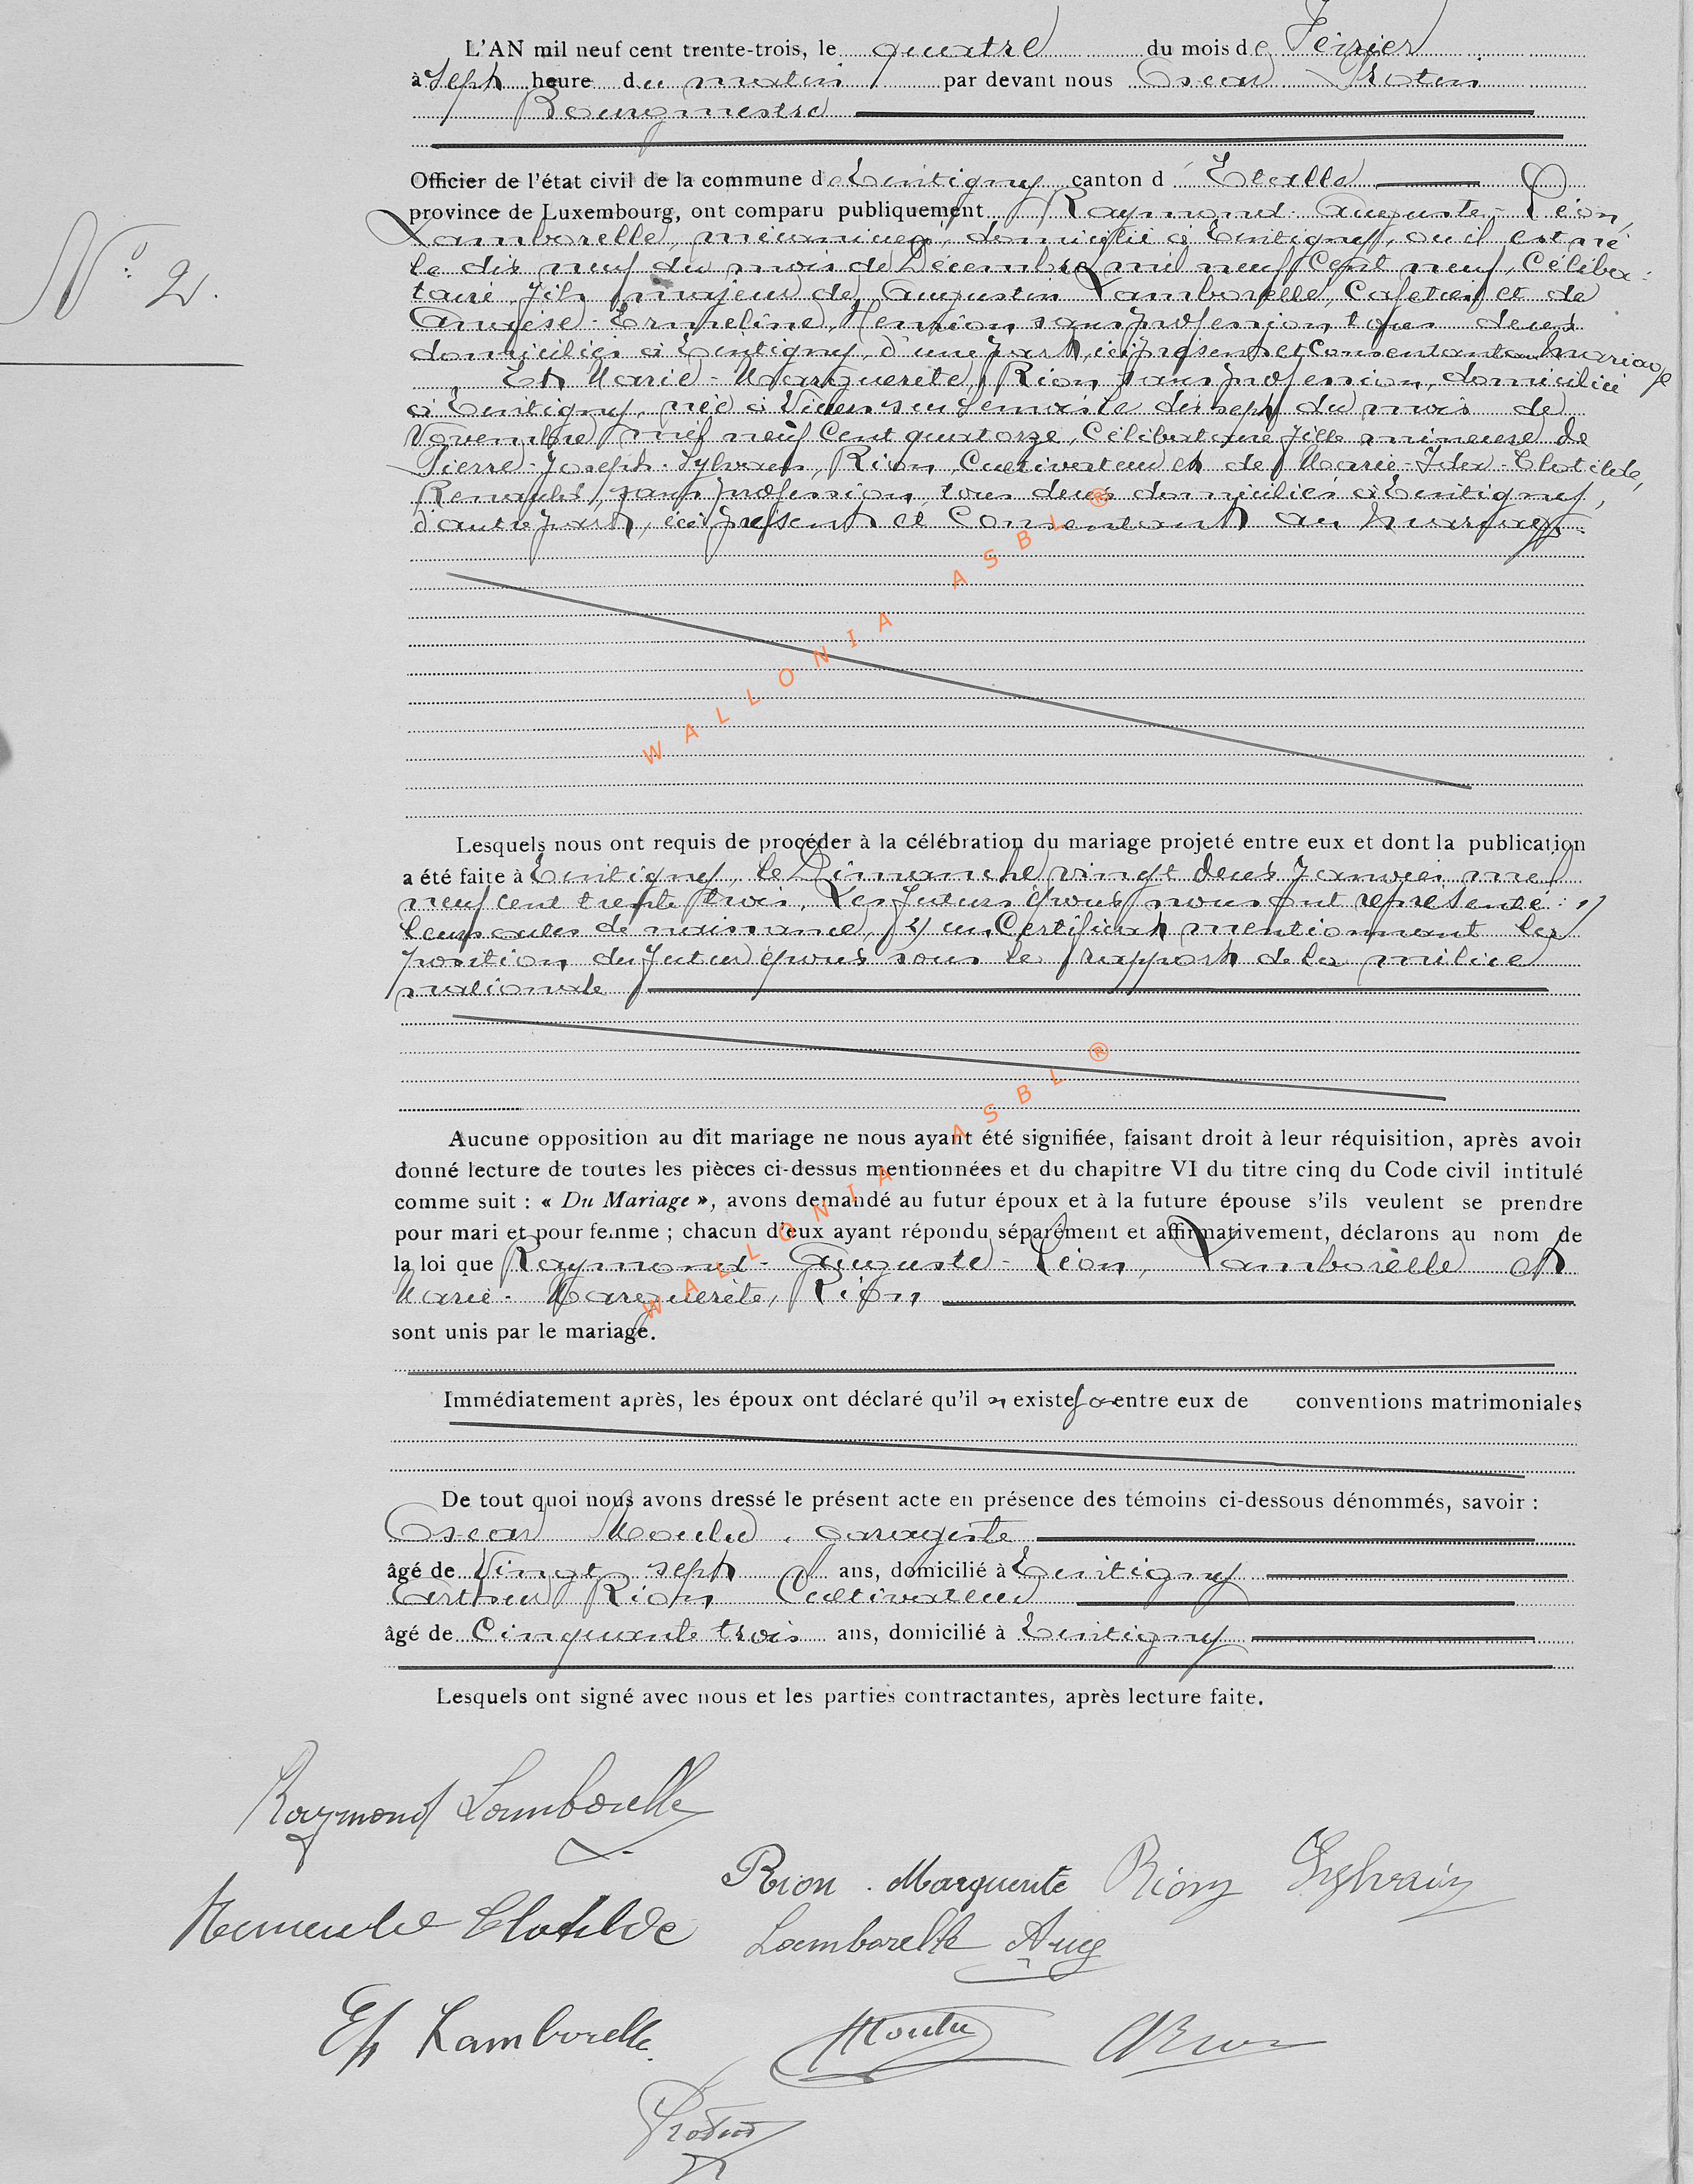 L'AN mil neuf cent trente-trois, le quatre du mois de Février
à Sept heure du matin par devant nous Oscar Protin
Bourgmestre
Officier de l'état civil de la commune de Tintigny canton d'Etalle
province de Luxembourg, ont comparu publiquement Raymond-Auguste-Léon,
Lamborelle, mécanicien, domicilié à Tintigny, où il est né
le dix neuf du mois de Décembre mil neuf cent neuf, Céliba-
N° 2.
taire, fils majeur de Augustin Lamborelle, Cafetier et de
Ermeline, Henrion, sans profession, tous deux
domiciliés à Tintigny, d'une part, ici présents et Consentant au mariage
Et Marie-Marguerite, Rion, sans profession, domiciliée
à Tintigny, née à le dix sept du mois de
Novembre mil neuf Cent quatorze, Célibataire fille mineure de
Pierre-Joseph-Sylvain, Rion, Cultivateur et de Marie-Ida-Clotilde,
sans profession, tous deux domiciliés à Tintigny,
d'autre part, ici présent et Consentant au mariage.
WALLONIA ASBL ®
Lesquels nous ont requis de procéder à la célébration du mariage projeté entre eux et dont la publication
a été faite à Tintigny, le Dimanche vingt deux Janvier mil
neuf cent trente trois. Les futurs époux nous ont représenté : 1)
leurs actes de naissance, 2) un Certificat mentionnant la
position du futur époux sous le rapport de la milice
nationale
WALLONIA ASBL ®
Aucune opposition au dit mariage ne nous ayant été signifiée, faisant droit à leur réquisition, après avoir
donné lecture de toutes les pièces ci-dessus mentionnées et du chapitre VI du titre cinq du Code civil intitulé
comme suit : « Du Mariage », avons demandé au futur époux et à la future épouse s'ils veulent se prendre
pour mari et pour femme ; chacun d'eux ayant répondu séparément et affirmativement, déclarons au nom de
la loi que Raymond-Auguste-Léon, Lamborelle et
Marie-Marguerite, Rion
sont unis par le mariage.
Immédiatement après, les époux ont déclaré qu'il n existe pas entre eux de conventions matrimoniales
De tout quoi nous avons dressé le présent acte en présence des témoins ci-dessous dénommés, savoir :
Oscar Moulu, Garagiste
âgé de Vingt sept ans, domicilié à Tintigny
Arthur Rion Cultivateur
âgé de Cinquante trois ans, domicilié à Tintigny
Lesquels ont signé avec nous et les parties contractantes, après lecture faite.
Raymond Lamborelle
Rion. Marguerite Rion Sylvain
Clotilde Lamborelle Aug
Ep Lamborelle Moulu ARion
Protin